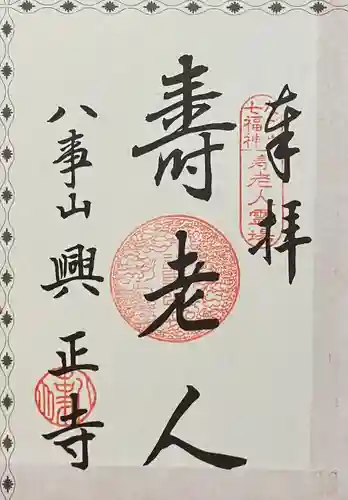 奉拝
七福神
寿老人霊場
壽老人
八事山興正寺